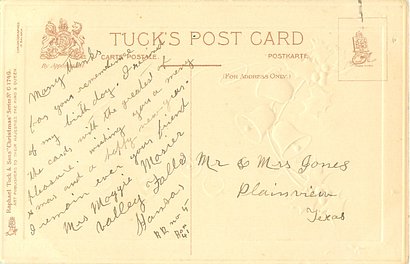 TUCK'S POST CARD
CARTE POSTALE
POSTKARTE
(FOR ADDRESS ONLY)
Raphael Tuck & Sons' "Christmas" Series
ART PUBLISHERS TO THEIR MAJESTIES THE KING & QUEEN
Many thanks
for your remembrance
of my birth day. I
the cards with the greatest
pleasure. wishing you a merry
xmas and a happy new year.
I remain ever your friend
Mrs Maggie Mosier
Valley Falls
Kansas
RR no 5
Box 41
Mr & Mrs Jones
Plainview
Texas